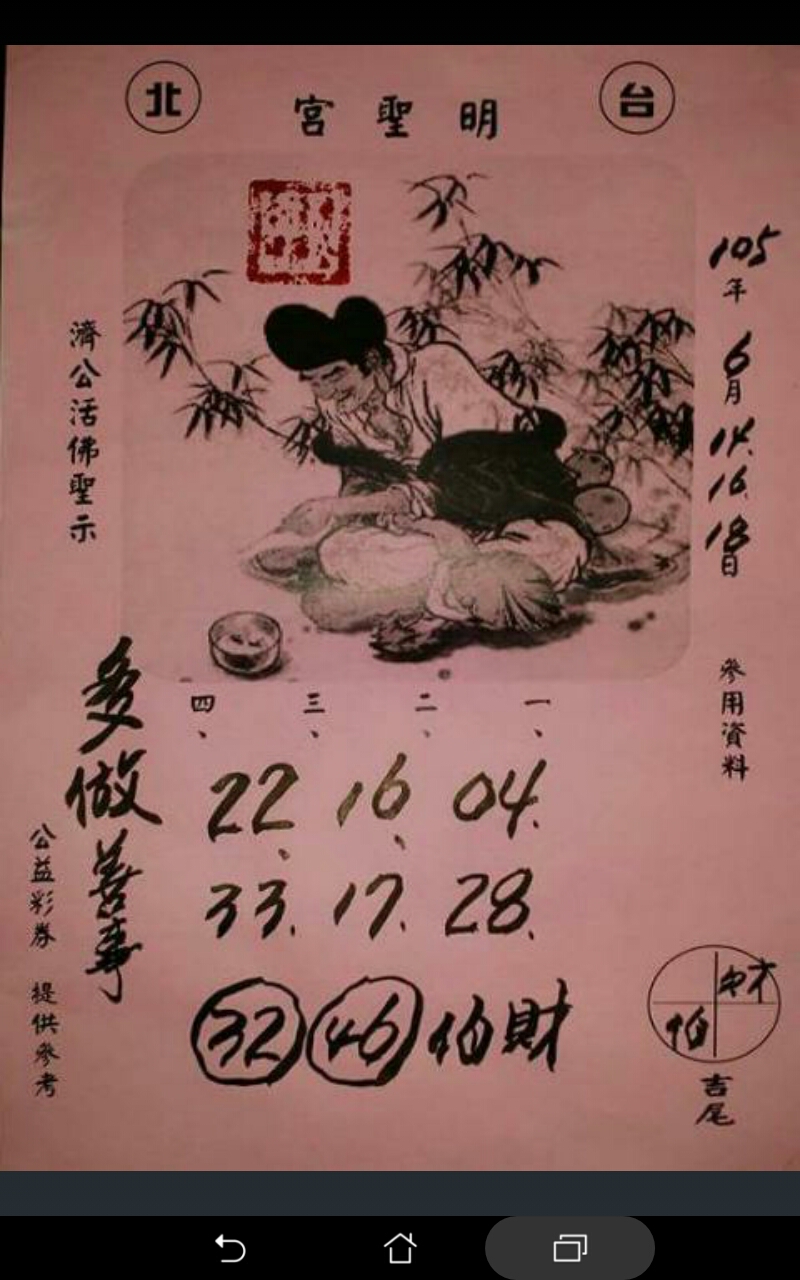 台北
明聖宮
105年6月14.16.18日
參用資料
濟公活佛聖示
一、 二、 三、 四、
04. 16、 22、
28. 17. 33.
財伯 46 32
多做善事
公益彩券 提供參考
財
伯
吉尾